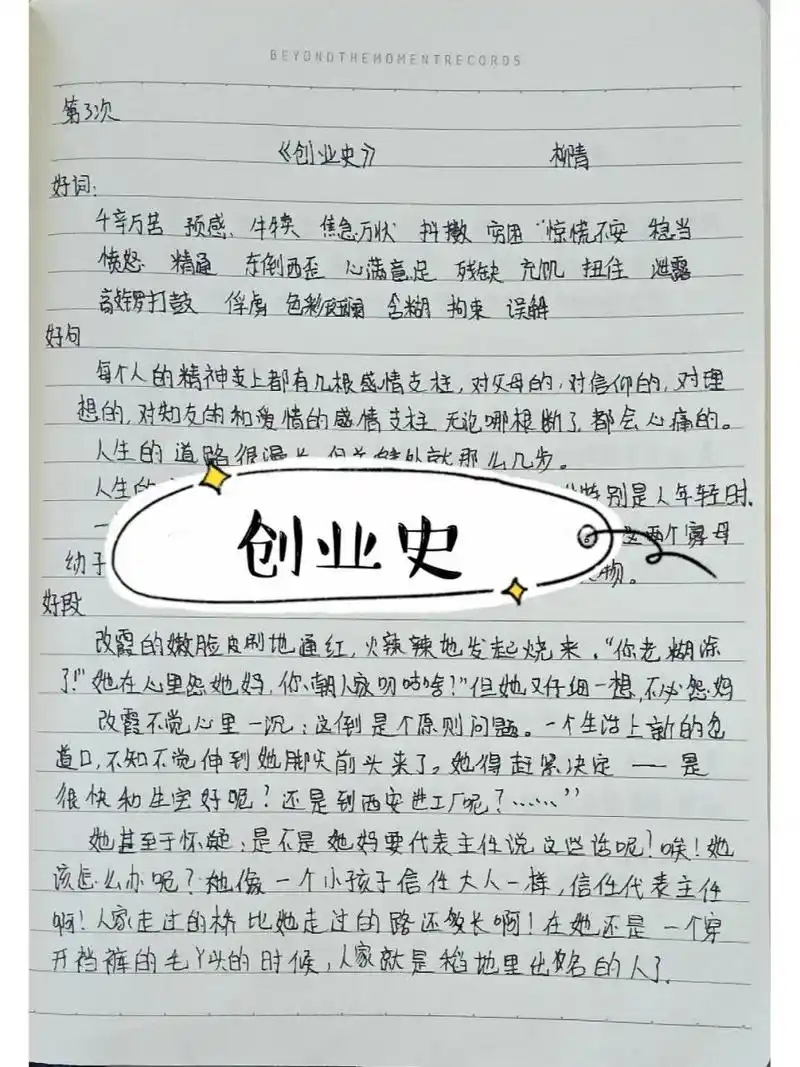 BEYONDTHEMOMENTRECORDS
第3次
《创业史》 柳青
好词:
千辛万苦 预感、牛犊 焦急万状 抖擞 穷困 惊慌不安 稳当
愤怒 精通 东倒西歪 心满意足 残缺 充饥 扭住 泄露
高敲锣打鼓 俘虏 色彩斑斓 含糊 拘束 误解
好句
每个人的精神支上都有几根感情支柱,对父母的,对信仰的,对理
想的,对知友的和爱情的感情支柱 无论哪根断了,都会心痛的。
人生的道路很漫长,但 就那么几步。
人生的 特别是人年轻时.
一 这两个寡母
幼子 物。
创业史
好段
改霞的嫩脸皮刷地通红,火辣辣地发起烧来."你老糊涂
了!"她在心里怨她妈,你,朝人家叨咕啥?"但她又仔细一想,不必怨妈
改霞不觉心里一沉:这倒是个原则问题。一个生活上新的岔
道口,不知不觉伸到她脚尖前头来了。她得赶紧决定——是
很快和生宝好呢?还是到西安进工厂呢?……"
她甚至于怀疑:是不是她妈要代表主任说这些话呢?唉!她
该怎么办呢?她像一个小孩子信任大人一样,信任代表主任
啊!人家走过的桥比她走过的路还要长啊!在她还是一个穿
开裆裤的毛丫头的时候,人家就是稻地里出名的人了.